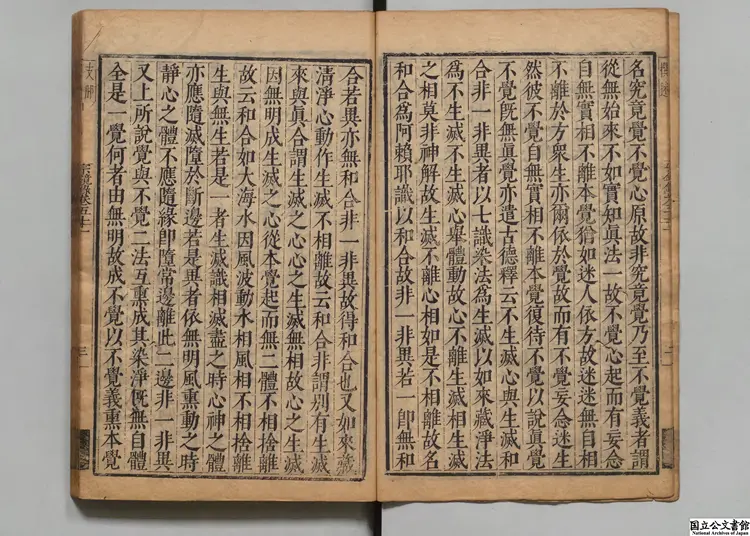 名究竟覺不覺心原故非究竟覺乃至不覺義者謂
從無始來不如實知眞法一故不覺心起而有妄念
自無實相不離本覺猶如迷人依方故迷迷無自相
不離於方衆生亦爾依於覺故而有不覺妄念迷生
然彼不覺自無實相不離本覺復待不覺以說眞覺
不覺旣無眞覺亦遣古德釋云不生滅心與生滅和
合非一非異者以七識染法爲生滅以如來藏淨法
爲不生滅不生滅心舉體動故心不離生滅相生滅
之相莫非神解故生滅不離心相如是不相離故名
和合爲阿賴耶識以和合故非一非異若一卽無和
合若異亦無和合非一非異故得和合也又如來藏
清淨心動作生滅不相離故云和合非謂別有生滅
來與眞合謂生滅之心心之生滅無相故心之生滅
因無明成生滅之心從本覺起而無二體不相捨離
故云和合如大海水因風波動水相風相不相捨離
生與無生若是一者生滅識相滅盡之時心神之體
亦應隨滅墮於斷邊若是異者依無明風熏動之時
靜心之體不應隨緣卽墮常邊離此二邊非一非異
又上所說覺與不覺二法互熏成其染淨旣無自體
全是一覺何者由無明故成不覺以不覺義熏本覺
国立公文書館
National Archives of Japan